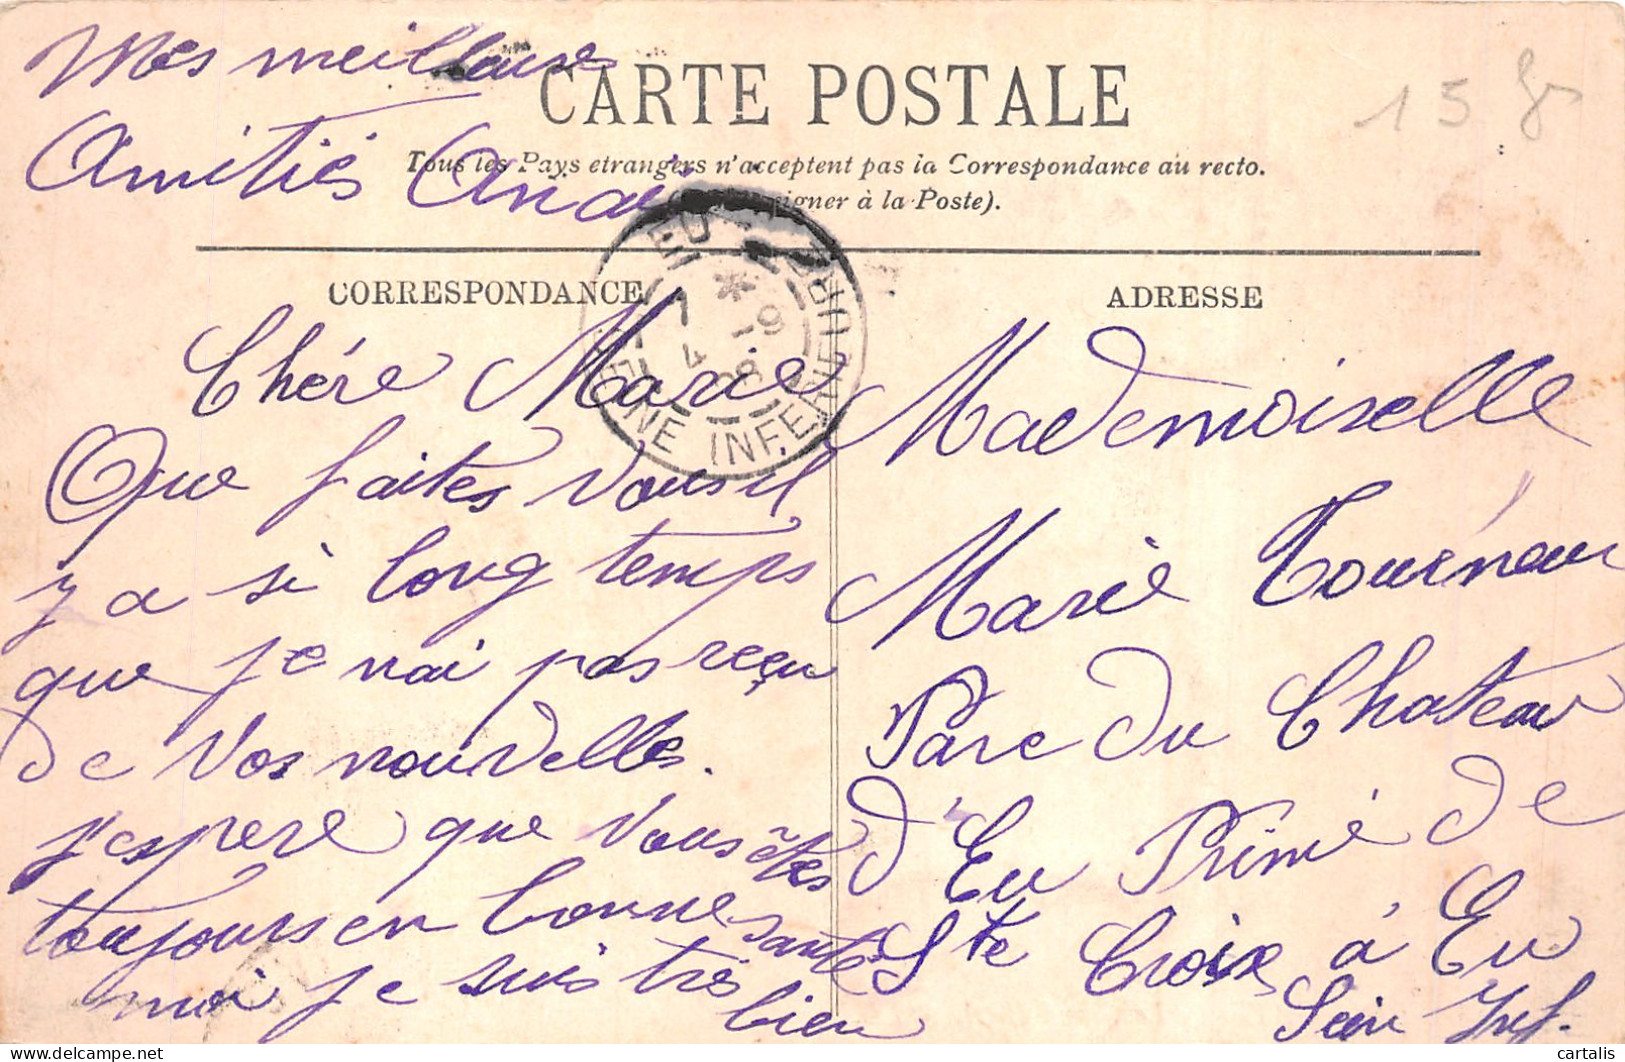 Mes meilleures
Amitiés
CARTE POSTALE
15
Tous les Pays etrangers n'acceptent pas la Correspondance au recto.
à la Poste).
CORRESPONDANCE
ADRESSE
EU
SEINE INFERIEURE
7 * 9
4 08
Chére Marie
Que faites vous il
y a si long temps
que je nai pas reçu
de vos nouvelles.
j'espere que vous êtes
toujours en bonne santé
moi je suis très
bien
Mademoiselle
Marie Tourneur
Parc du Chateau
d'Eu
de
Ste Croix à Eu
Sein Inf.
cartalis